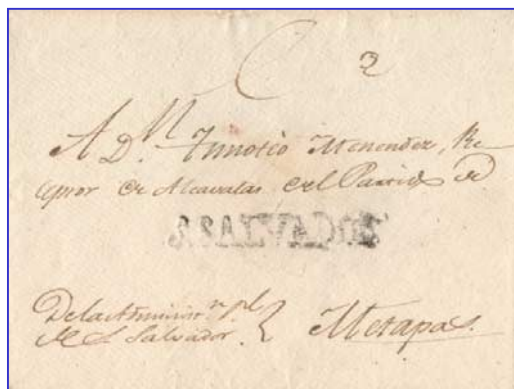 2
A D.n Menendez, Re-
de Alcavalas del Partido de
S.SALVADOR
De la Admin.on p.pl
de S. Salvador. Metapas.